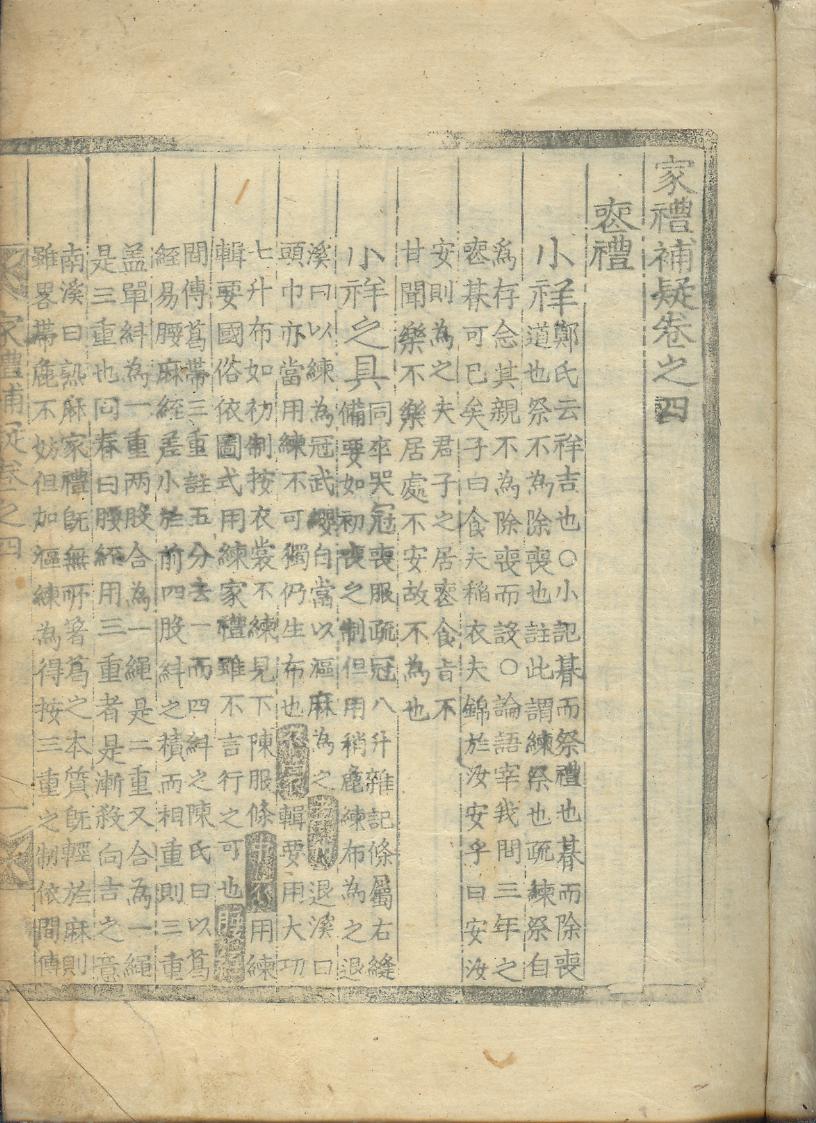 家禮補疑卷之四
䘮禮
小祥
鄭氏云祥吉也○小記朞而祭禮也朞而除喪
道也祭不為除喪也註此謂練祭也疏練祭自
爲存念其親不為除喪而設○論語宰我問三年之
䘮朞可已矣子曰食夫稻衣夫錦於汝安乎曰安汝
安則為之夫君子之居䘮食旨不
甘聞樂不樂居處不安故不為也
小祥之具
同卒哭冠喪服疏冠八升雜記條屬右縫
備要如初喪之制但用稍麁練布為之退
溪曰以練為冠武纓自當以漚麻為之退溪曰
頭巾亦當用練不可獨仍生布也衣裳輯要用大功
七升布如初制按衣裳不練見下陳服條中衣用練
輯要國俗依圖式用練家禮雖不言行之可也腰絰
間傳葛帶三重註五分去一而四糾之陳氏曰以葛
絰易腰麻絰差小於前四股糾之積而相重則三重
盖單糾為一重两股合為一繩是二重又合為一繩
是三重也同春曰腰絰用三重者是漸殺向吉之意
南溪曰熟麻家禮旣無所著葛之本質旣輕於麻則
雖畧帶麁不妨但加漚練為得按三重之制依間傳
家禮補疑卷之四 一